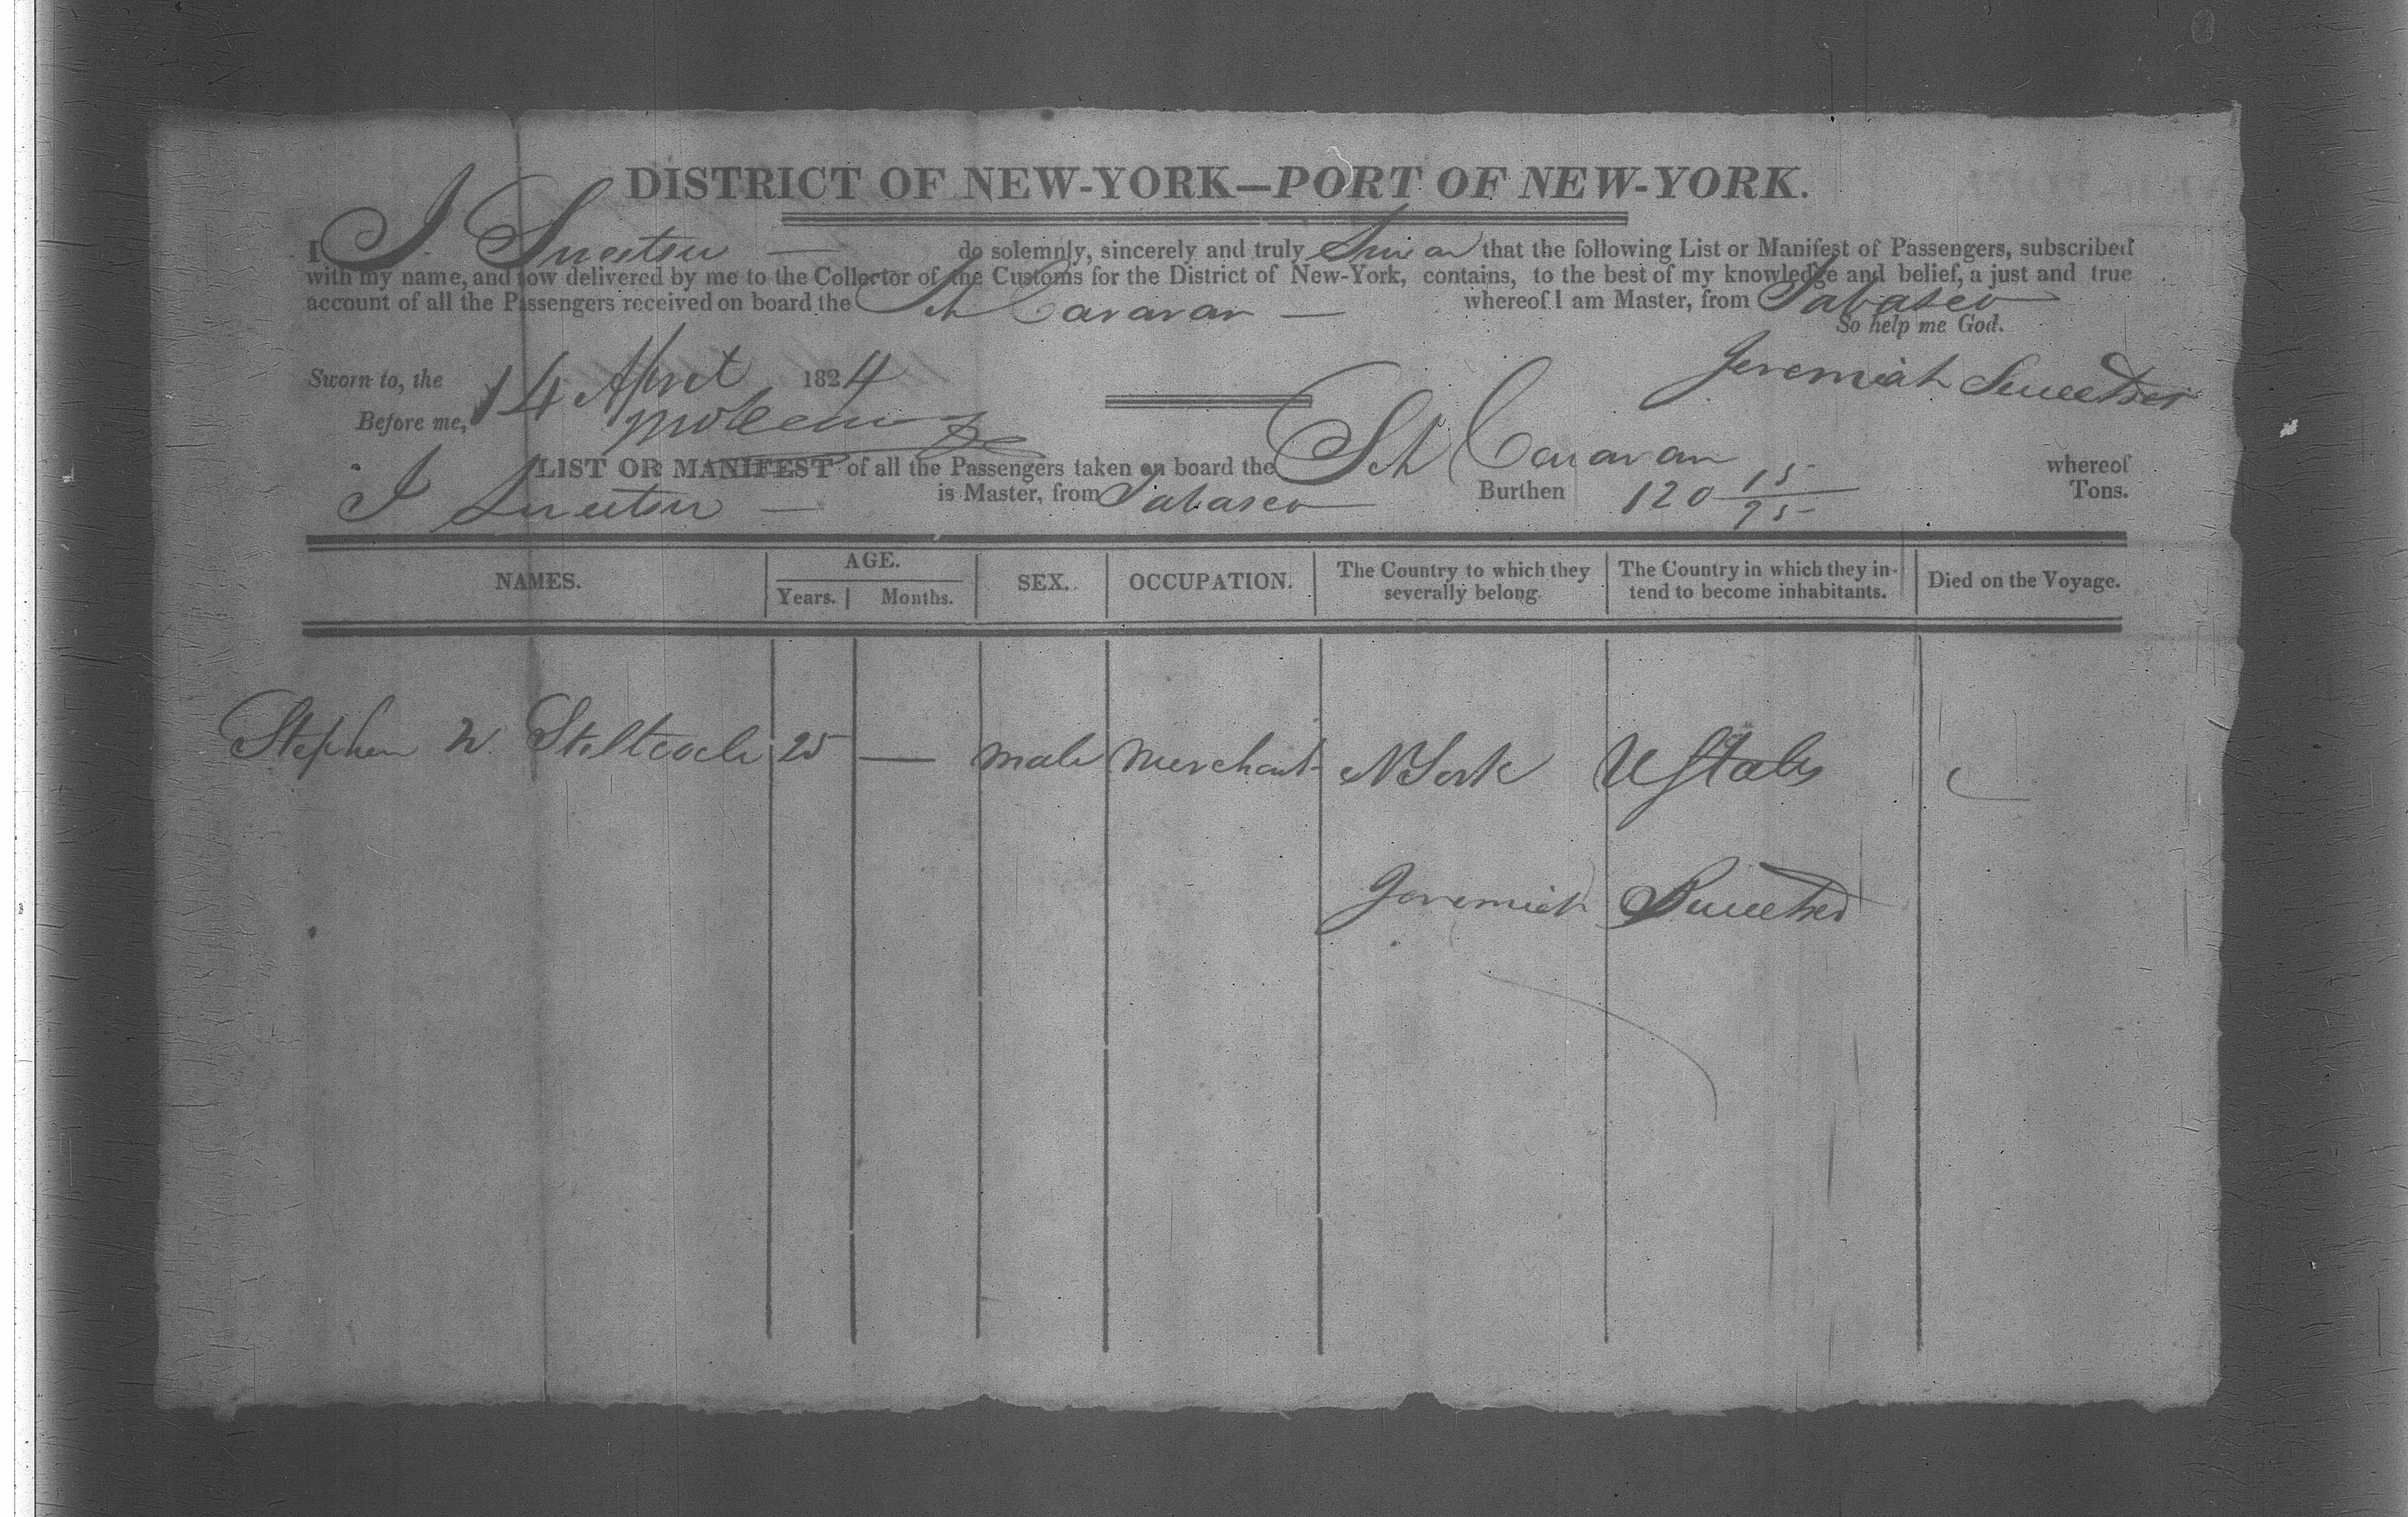 DISTRICT OF NEW-YORK—PORT OF NEW-YORK.
I J. Sweetser — do solemnly, sincerely and truly Swear that the following List or Manifest of Passengers, subscribed
with my name, and now delivered by me to the Collector of the Customs for the District of New-York, contains, to the best of my knowledge and belief, a just and true
account of all the Passengers received on board the Sch Caravan — whereof I am Master, from Tabasco
So help me God.
Sworn to, the 14 April 1824
Jeremiah Sweetser
Before me,
LIST OR MANIFEST of all the Passengers taken on board the Sch Caravan whereof
J Sweetser — is Master, from Tabasco Burthen 120 15/95 Tons.
NAMES. AGE. Years. Months. SEX. OCCUPATION. The Country to which they severally belong. The Country in which they intend to become inhabitants. Died on the Voyage.
Stephen W. 25 — male Merchant N York U States
Jeremiah Sweetser